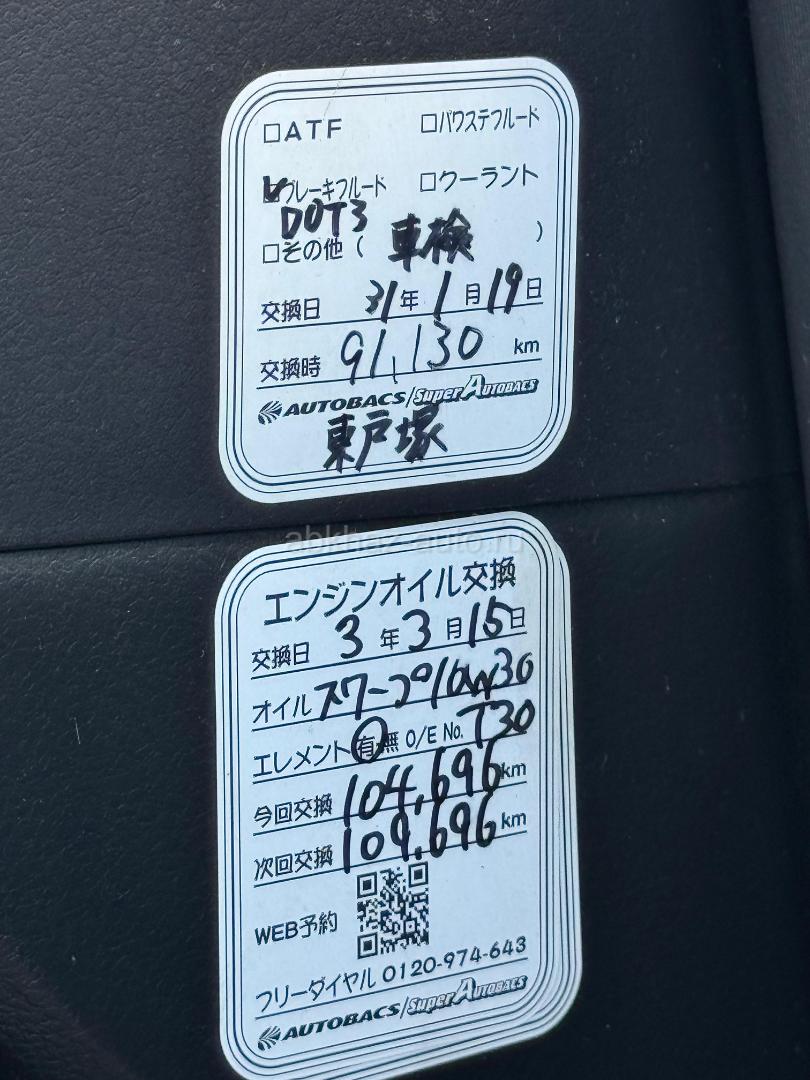 □ATF □パワステフルード
☑ブレーキフルード □クーラント
DOT3
□その他（ 車検 ）
交換日 31年1月19日
交換時 91,130 km
AUTOBACS/Super AUTOBACS
東戸塚
abkhaz-auto.ru
エンジンオイル交換
交換日 3年3月15日
オイル スワープ10W30
エレメント 有・無 O/E No. T30
今回交換 104,696km
次回交換 109,696km
WEB予約
フリーダイヤル 0120-974-643
AUTOBACS/Super AUTOBACS